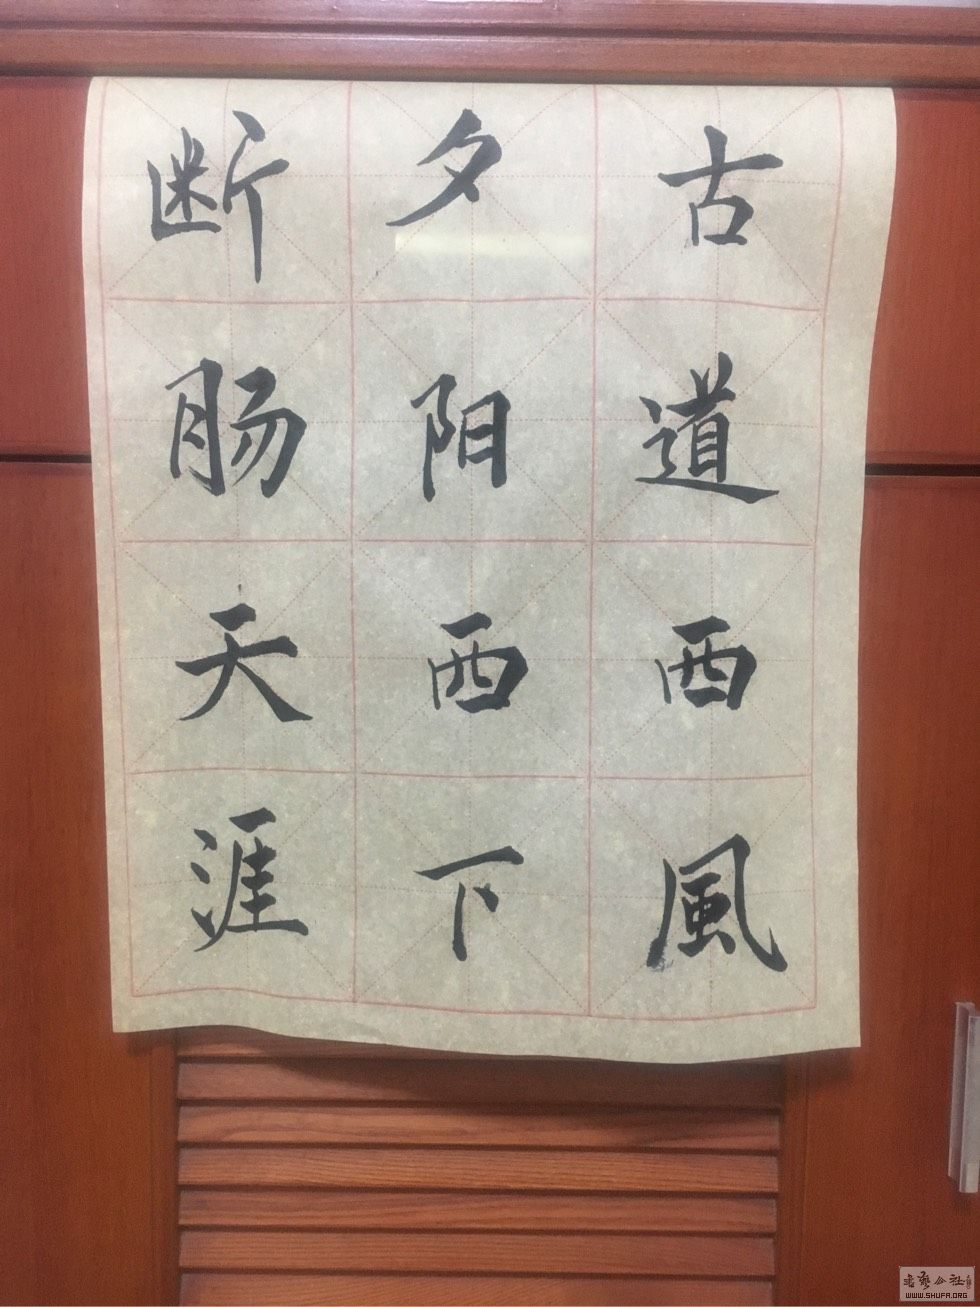 古道西風
夕阳西下
断肠天涯
书艺公社
WWW.SHUFA.ORG